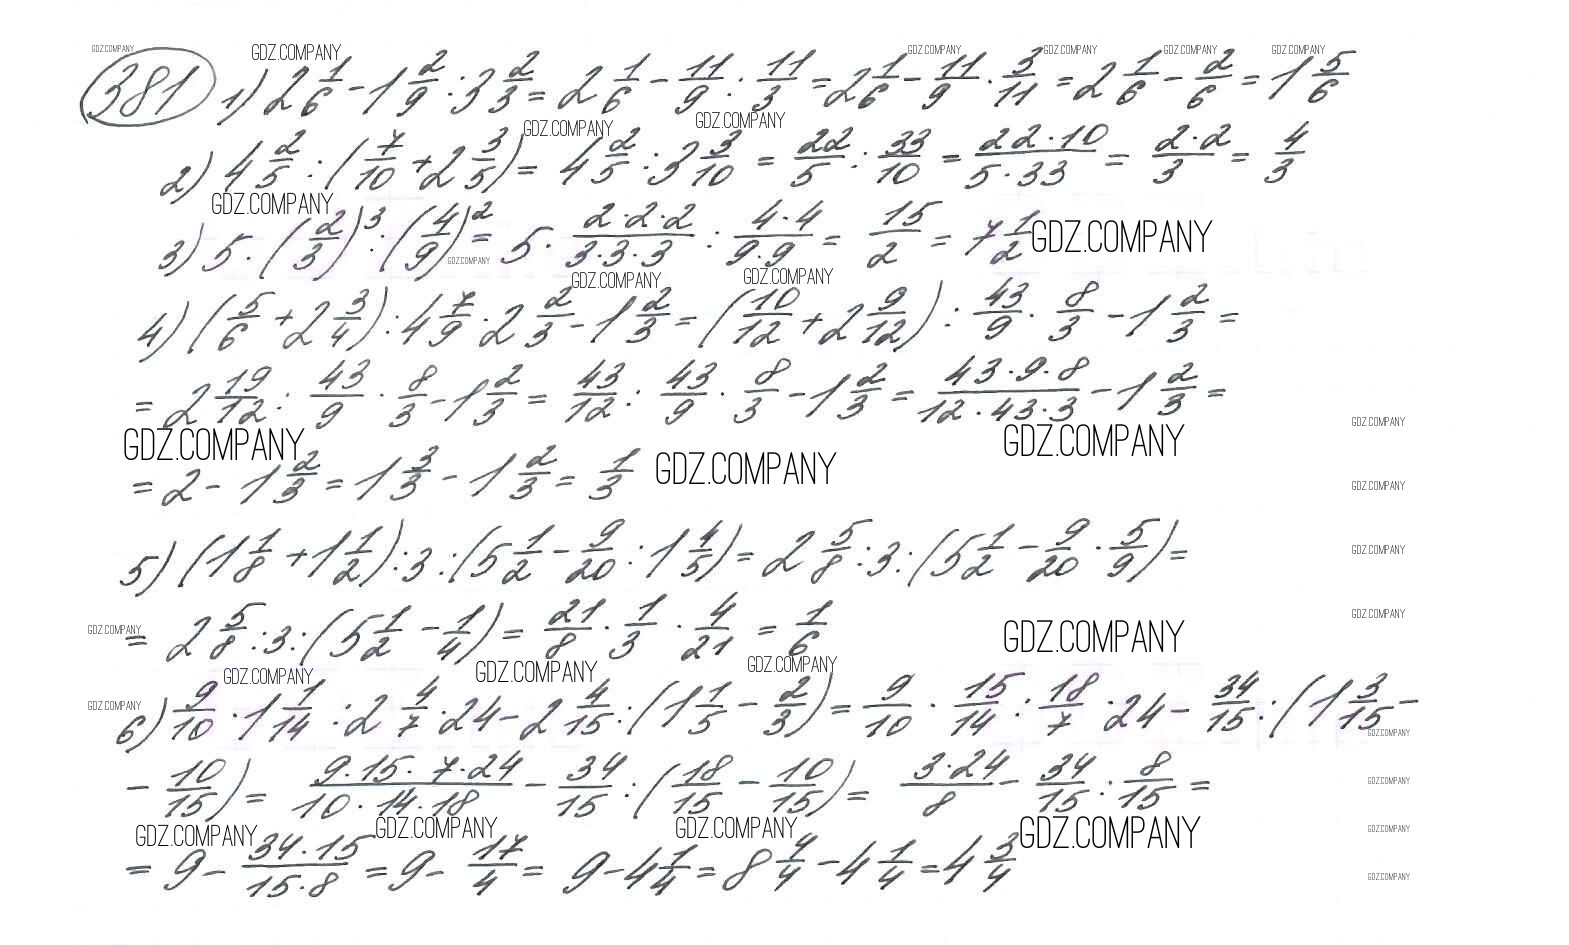 GDZ.COMPANY GDZ.COMPANY GDZ.COMPANY GDZ.COMPANY GDZ.COMPANY GDZ.COMPANY
381 1) 2 1/6 - 1 2/9 : 3 2/3 = 2 1/6 - 11/9 : 11/3 = 2 1/6 - 11/9 · 3/11 = 2 1/6 - 2/6 = 1 5/6
GDZ.COMPANY GDZ.COMPANY
2) 4 2/5 : (7/10 + 2 3/5) = 4 2/5 : 3 3/10 = 22/5 : 33/10 = 22·10/5·33 = 2·2/3 = 4/3
GDZ.COMPANY
3) 5 · (2/3)³ : (4/9)² = 5 · 2·2·2/3·3·3 : 4·4/9·9 = 15/2 = 7 1/2 GDZ.COMPANY
GDZ.COMPANY GDZ.COMPANY GDZ.COMPANY
4) (5/6 + 2 3/4) : 4 7/9 · 2 2/3 - 1 2/3 = (10/12 + 2 9/12) : 43/9 · 8/3 - 1 2/3 =
= 2 19/12 : 43/9 · 8/3 - 1 2/3 = 43/12 : 43/9 · 8/3 - 1 2/3 = 43·9·8/12·43·3 - 1 2/3 =
GDZ.COMPANY GDZ.COMPANY GDZ.COMPANY
= 2 - 1 2/3 = 1 3/3 - 1 2/3 = 1/3 GDZ.COMPANY GDZ.COMPANY
5) (1 1/8 + 1 1/2) : 3 : (5 1/2 - 9/20 : 1 4/5) = 2 5/8 : 3 : (5 1/2 - 9/20 · 5/9) = GDZ.COMPANY
GDZ.COMPANY = 2 5/8 : 3 : (5 1/2 - 1/4) = 21/8 · 1/3 · 4/21 = 1/6 GDZ.COMPANY GDZ.COMPANY
GDZ.COMPANY GDZ.COMPANY GDZ.COMPANY
GDZ.COMPANY 6) 9/10 · 1 1/14 : 2 4/7 · 24 - 2 4/15 : (1 1/5 - 2/3) = 9/10 · 15/14 : 18/7 · 24 - 34/15 : (1 3/15 -
GDZ.COMPANY
- 10/15) = 9·15·7·24/10·14·18 - 34/15 : (18/15 - 10/15) = 3·24/8 - 34/15 : 8/15 = GDZ.COMPANY
GDZ.COMPANY GDZ.COMPANY GDZ.COMPANY GDZ.COMPANY GDZ.COMPANY
= 9 - 34·15/15·8 = 9 - 17/4 = 9 - 4 1/4 = 8 4/4 - 4 1/4 = 4 3/4 GDZ.COMPANY